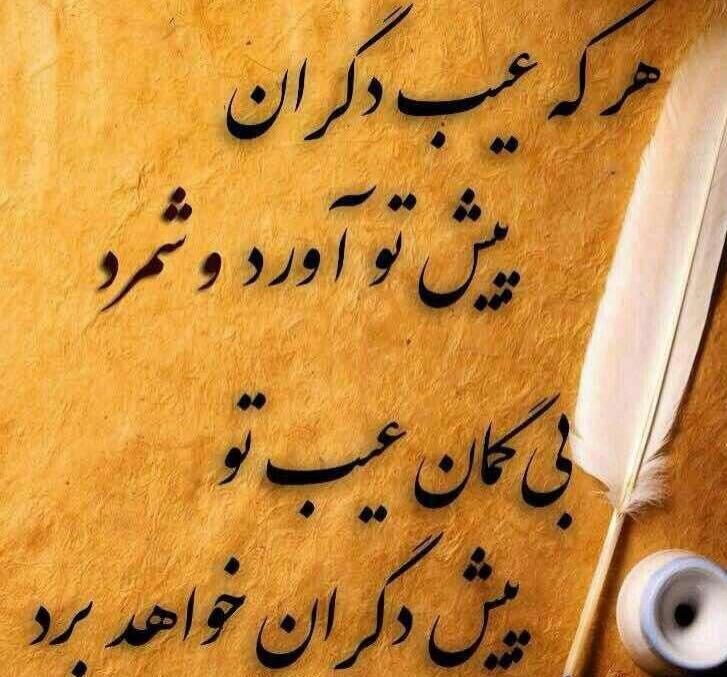 هر که عیب دگران
پیش تو آورد و شمرد
بی گمان عیب تو
پیش دگران خواهد برد